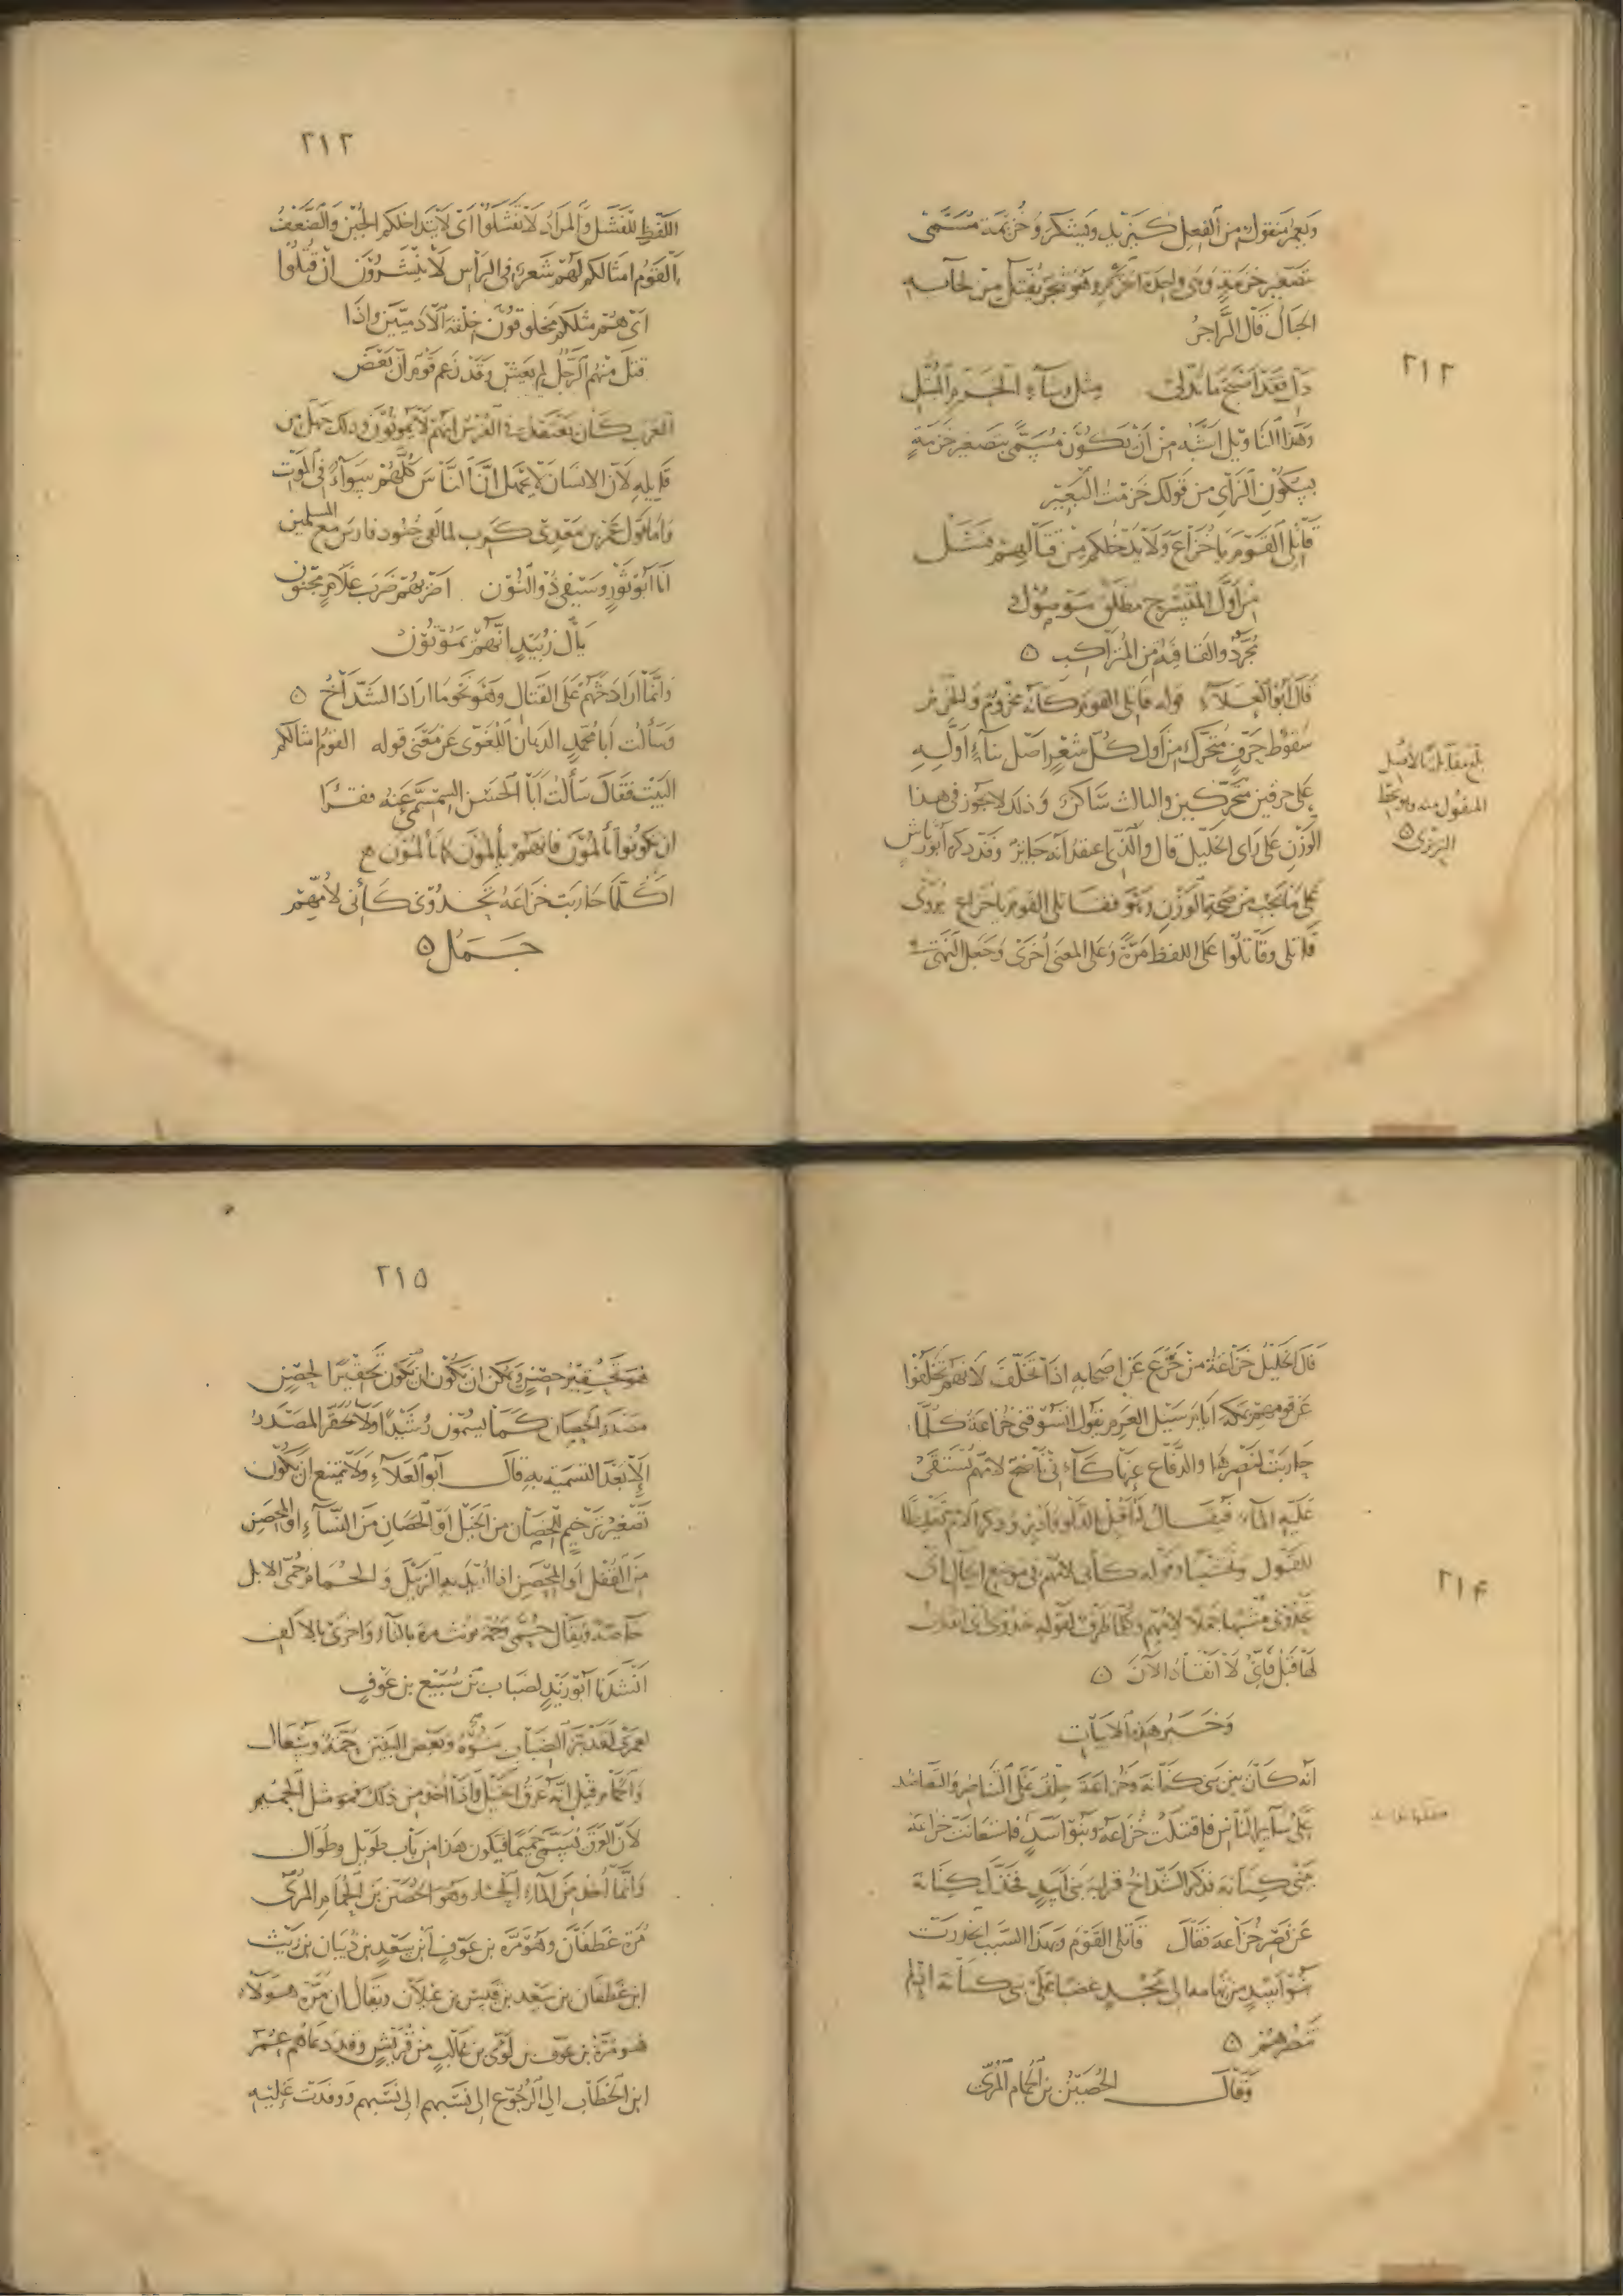 ٢١٢
ويعمر منقول من الفعل كيزيد ويشكر وخزيمة مسمى
بتصغير خزمة وهي واحدة الخزم وهو شجر يفتل من لحائه
الحبال قال الراجز
مثل رشاء الخزم المبتل
وهذا التأويل اشبه من أن يكون مسمى بتصغير خزمة
بسكون الزاي من قولك خزمت البعير
قاتل القوم يا خزاع ولا يدخلكم من قتالهم فشل
من أول المنسرح مطلق موصول
مجرد والقافية من المتراكب ه
قال أبو العلاء قوله قاتلي القوم كأنه مخروم والخرم
سقوط حرف متحرك من أول كل شعر اصل بناء أوله
على حرفين متحركين والثالث ساكن وذلك لا يجوز في هذا
الوزن على رأي الخليل قال والذي اعتقد أنه جايز وقد ذكره أبو رياش
على ما يجب من صحة الوزن وهو فقاتلي القوم يا خزاع يروى
قاتلي وقاتلوا على اللفظ مرة وعلى المعنى أخرى وجعل النهي
بلغ مقابلة بالأصل
المنقول منه وهو بخط
التبريزي ه
٢١٣
اللفظ للفشل والمراد لا تفشلوا أي لا يتداخلكم الجبن والضعف
القوم امثالكم لهم شعر في الرأس لا ينشرون ان قتلوا
أي هم مثلكم مخلوقون خلقة الآدميين واذا
قتل منهم الرجل لم يعش وقد زعم قوم أن بعض
العرب كان يعتقد في الفرس انهم لا يموتون وذلك جهل من
قايله لأن الانسان لا يجهل أن الناس كلهم سواء في الموت
وأما قول عمرو بن معدي كرب لما لقي جنود فارس مع المسلمين
أنا أبو ثور وسيفي ذو النون اضربهم ضرب غلام مجنون
يال زبيد انهم يموتون
وانما اراد حثهم على القتال وهو نحو ما اراد الشداخ ه
وسألت أبا محمد الدهان اللغوي عن معنى قوله القوم امثالكم
البيت فقال سألت أبا الحسن السمسمي عنه
ان تكونوا تألمون فانهم يألمون كما تألمون
اكلما حاربت خزاعة تحدوني كأني لأمهم
جمل ه
٢١٤
قال الخليل خزاعة من خزع عن اصحابه اذا تخلف لأنهم تخلفوا
عن قومهم بمكة أيام سيل العرم يقول اتسوقني خزاعة كلما
حاربت لنصرتها والدفاع عنها كأني ناضح لأمهم يستقى
عليه الماء فيقال له أقبل بالدلو وأدبر وذكر الأم تغليظا
للقول وتخشينا وقوله كأني لأمهم في موضع الحال أي
تحدوني مشبها جملا لأمهم وكلما ظرف لقوله تحدوني
لها قبل فإني لا أنقاد الآن ه
وخبر هذه الأبيات
أنه كان بين بني كنانة وخزاعة حلف على التناصر والتعاضد
على سائر الناس فاقتتلت خزاعة وبنو أسد فاستعانت خزاعة
بني كنانة فذكر الشداخ قرابة بني أسد فخذل كنانة
عن نصر خزاعة فقال قاتلي القوم وبهذا السبب انحدرت
بنو أسد من تهامة الى نجد غضبا على بني كنانة
تنصرهم ه
وقال الحصين بن الحمام المري
٢١٥
فهو تحقير حصن ويمكن ان يكون ان يكون تحقيرا لحصن
مصدر الحصان كما يسمون رشيدا ولا يحقر المصدر
إلا بعد التسمية به قال أبو العلاء ولا يمتنع ان يكون
تصغير ترخيم للحصان من الخيل أو الحصان من النساء او المحصن
من القفل أو المحصن اذا أريد به الزبيل والحمام حمى الابل
خاصة ويقال حمى وحمة يؤنث مرة بالتاء وأخرى بالألف
انشدنا أبو زيد لضباب بن سبيع بن عوف
لعمري لقد بر الضباب بنوه وبعض البنين حمة وسعال
والحمام قيل انه عرق الخيل فاذا أخذ من ذلك فهو مثل الحميم
لأن العرق يسمى حميما فيكون هذا من باب طويل وطوال
وانما أخذ من الماء الحار وهو الحصين بن الحمام المري
مرة غطفان وهو مرة بن عوف ابن سعد بن ذبيان بن ريث
ابن غطفان بن سعد بن قيس بن عيلان ويقال ان مرة هؤلاء
هو مرة بن عوف بن لؤي بن غالب من قريش وقد دعاهم عمر
ابن الخطاب الى الرجوع الى نسبهم الى نسبهم ووفدت عليه